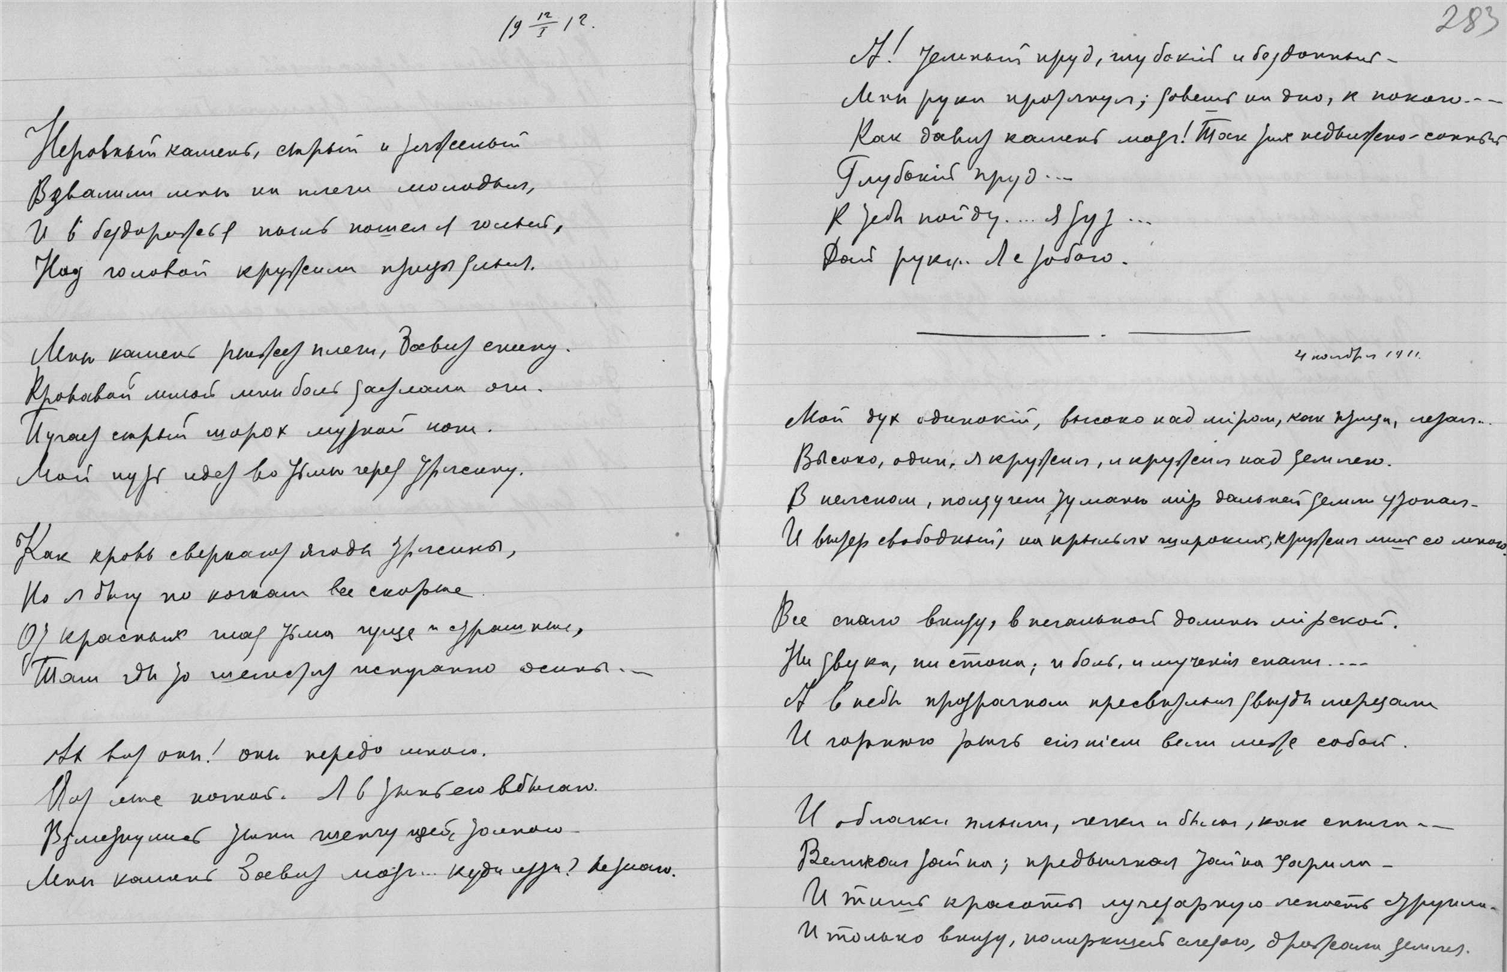 19 12/I 12.
Неровный камень, старый и тяжелый
Взвалили мнѣ на плечи молодыя,
И в бездорожье пошелъ я голый,
Над головой кружили птицы злыя.
Мнѣ камень рѣжет плечи, давит спину.
Кровавой мглой мнѣ боль застлала очи.
Пугает старый шорох мутной ночи.
Мой путь идет во тьмѣ через трясину.
Как кровь сверкают ягоды трясины,
Но я бѣгу по кочкам все скорѣе.
От красных глаз тьма гуще и страшнѣе,
Там гдѣ то шелестят испуганно осины...
Ах вот они! они передо мною.
Вот лѣс ночной. Я в тѣнь его вбѣгаю.
Взметнулись тѣни шепчущей толпою
Мнѣ камень давит мозг... Куда идти? Не знаю.
283
А! темный пруд, глубокій и бездонный
Мнѣ руки протянул; зовешь на дно, к покою...
Как давит камень мозг! Так тих недвижно-сонный
Глубокій пруд...
К тебѣ пойду.... Я тут...
Дай руку.. Я с тобою.
4 ноября 1911.
Мой дух одинокій, высоко над міром, как птица, летал..
Высоко, один, я кружил, я кружил над землею.
В неясном, ползучем туманѣ мір дальней земли утопал
И вѣтер свободный, на крыльях широких, кружил лишь со мною.
Все спало внизу, в печальной долинѣ мірской.
Ни звука, ни стона; и боль, и мученія спали....
А в небѣ прозрачном пресвѣтлыя звѣзды мерцали
И горнюю рѣчь сіяніем вели меж собой.
И облачки плыли, легки и бѣлы, как снѣга
Великая тайна; предвѣчная тайна царила
И тишь красоты лучезарную ясность струила
И только внизу, померкшей слезою, дрожала земля.